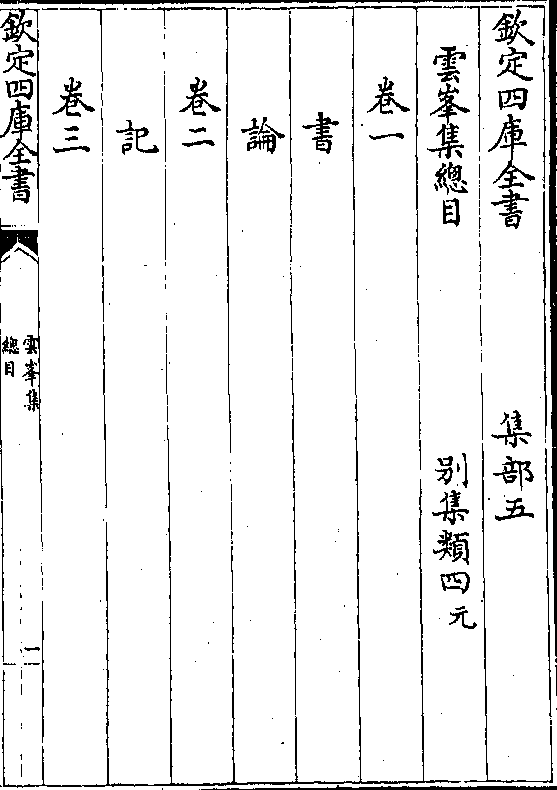 欽定四庫全書
集部五
雲峯集總目
别集類四元
卷一
書
論
卷二
記
卷三
欽定四庫全書
雲峯集
總目
一